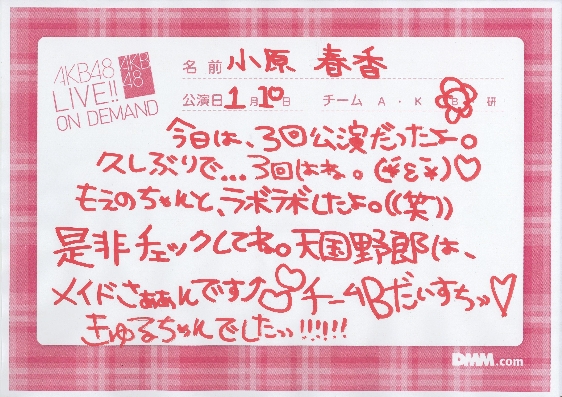 AKB48
LIVE!!
ON DEMAND
AKB
48
名前 小原 春香
公演日 1月10日 チーム A・K・B 研
今日は、3回公演だったよー。
久しぶりで…3回はね。(*´ε`*)♡
もえのちゃんと、ラボラボしたよ。((笑))
是非チェックしてね。天国野郎は、
メイドさぁぁんです♪チームBだいすちッ♡
きゅるちゃんでしたッ!!!!!!
DMM.com